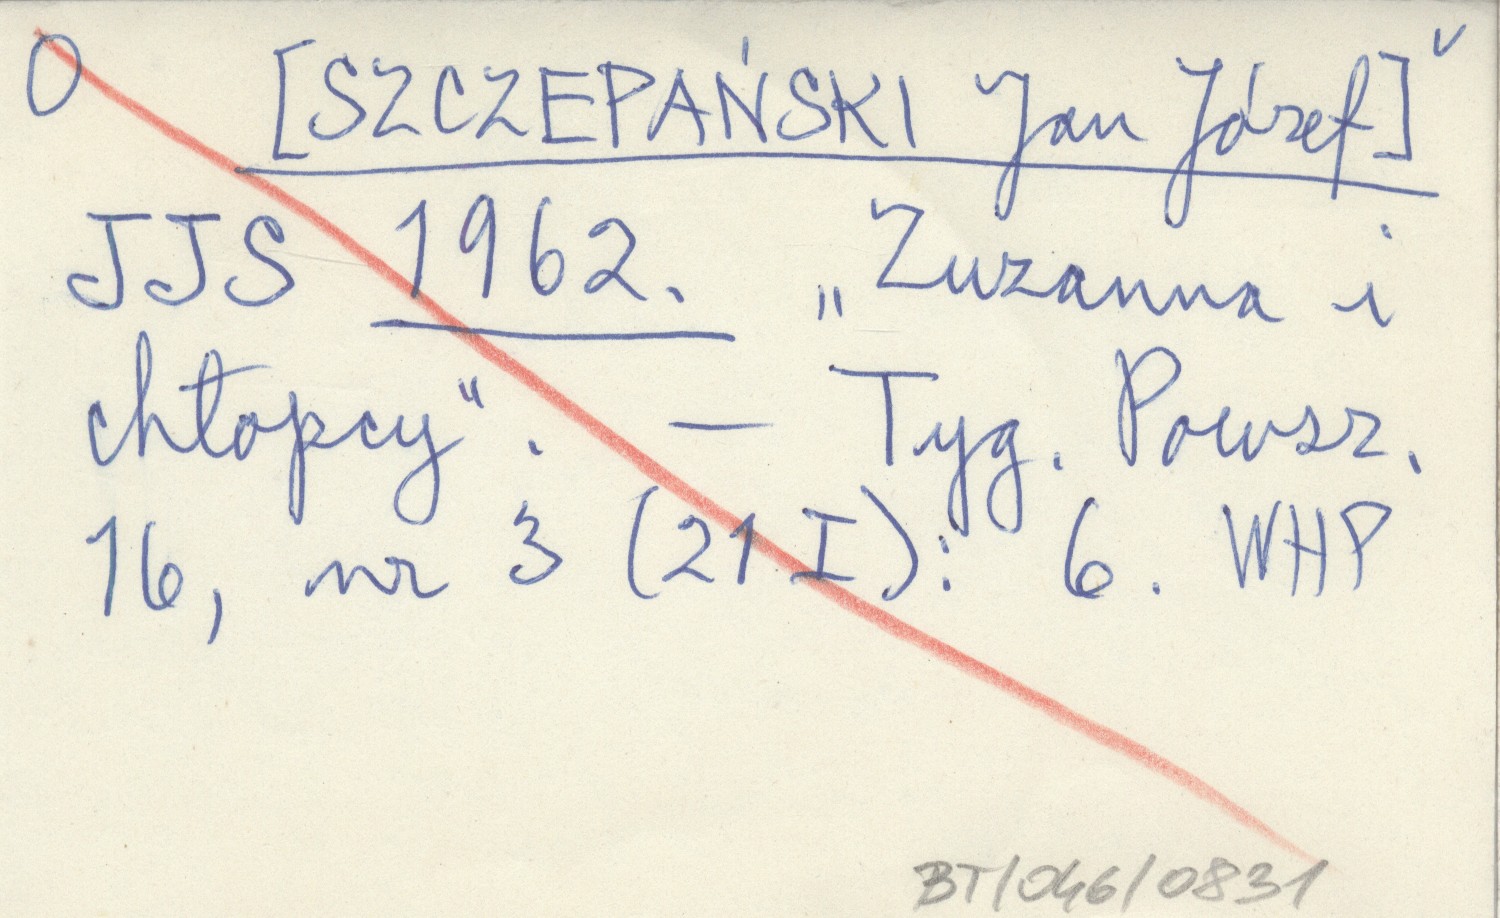 0 [SZCZEPAŃSKI Jan Józef] v
JJS 1962. „Zuzanna i
chłopcy". — Tyg. Powsz.
16, nr 3 (21 I): 6. WHP
BT/046/0831